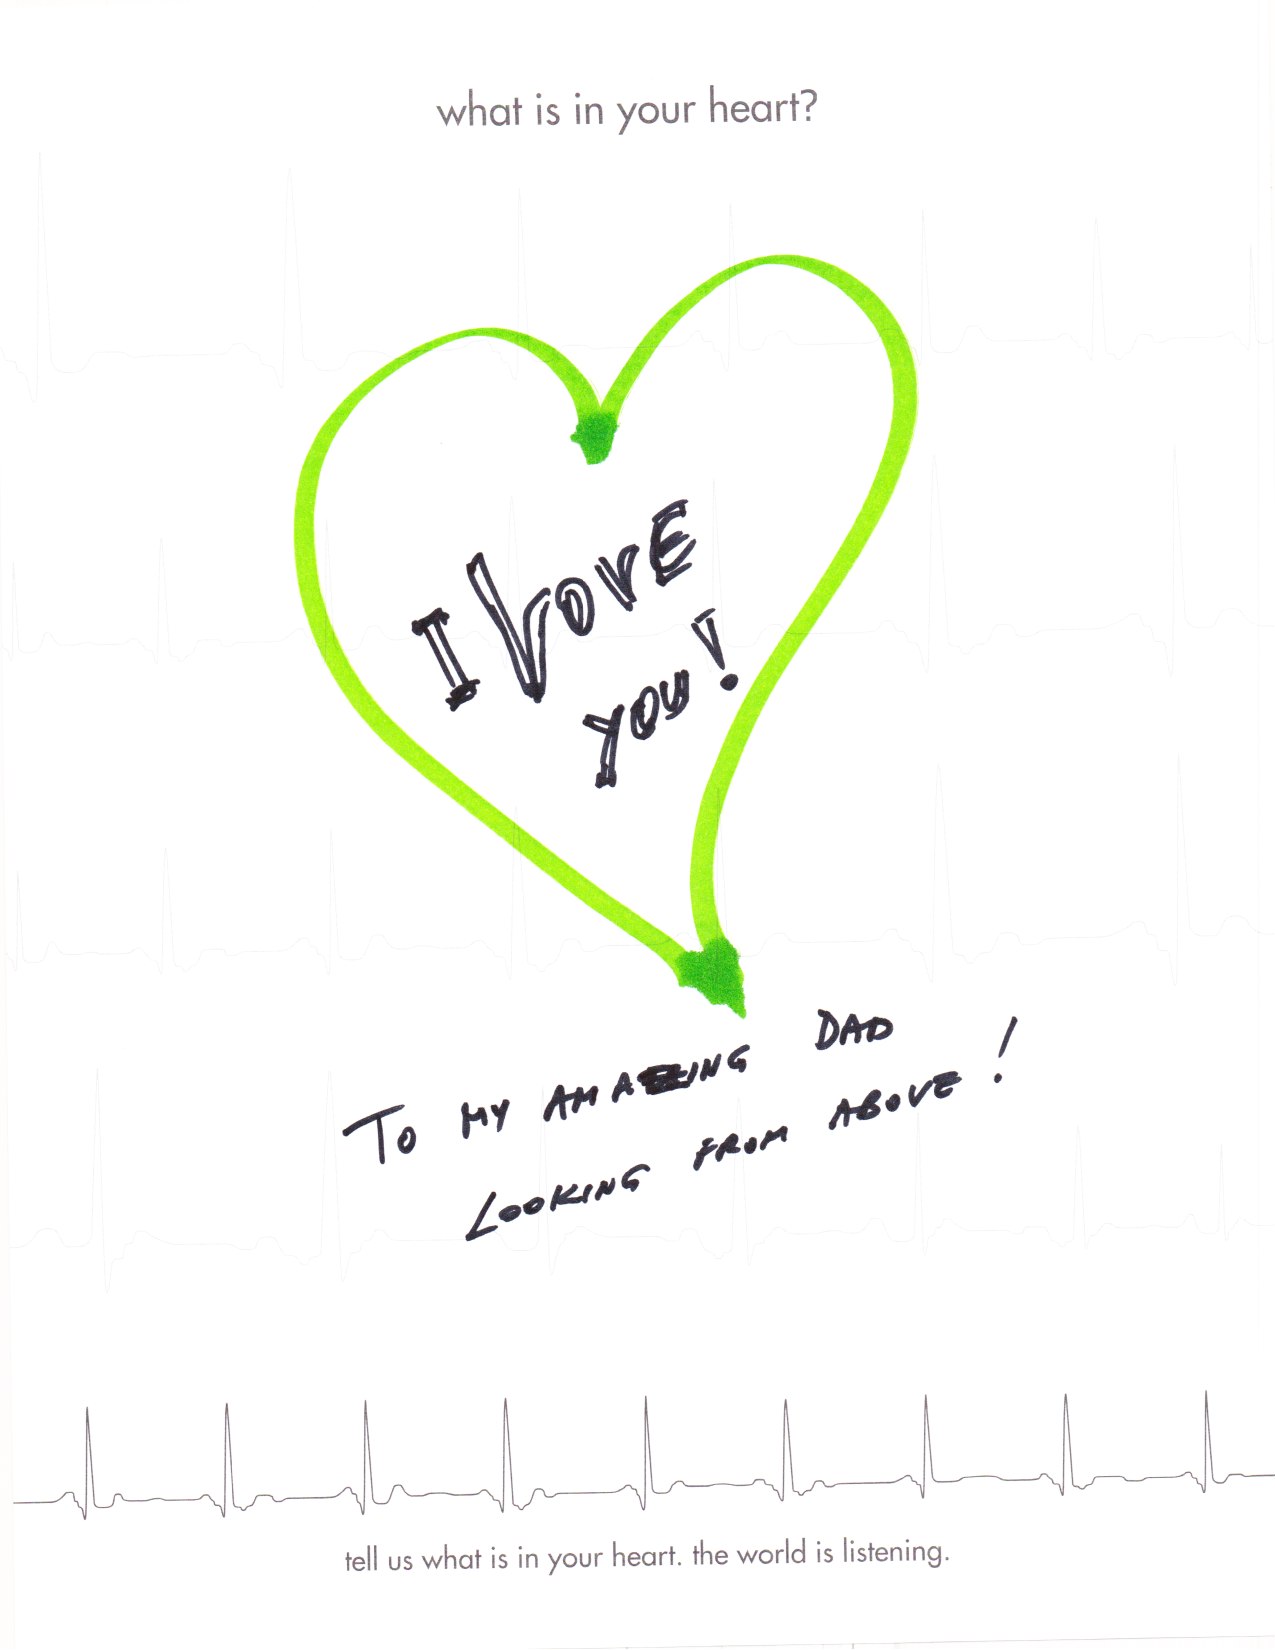 what is in your heart?
I LOVE
YOU!
TO MY AMAZING DAD
LOOKING FROM ABOVE!
tell us what is in your heart. the world is listening.